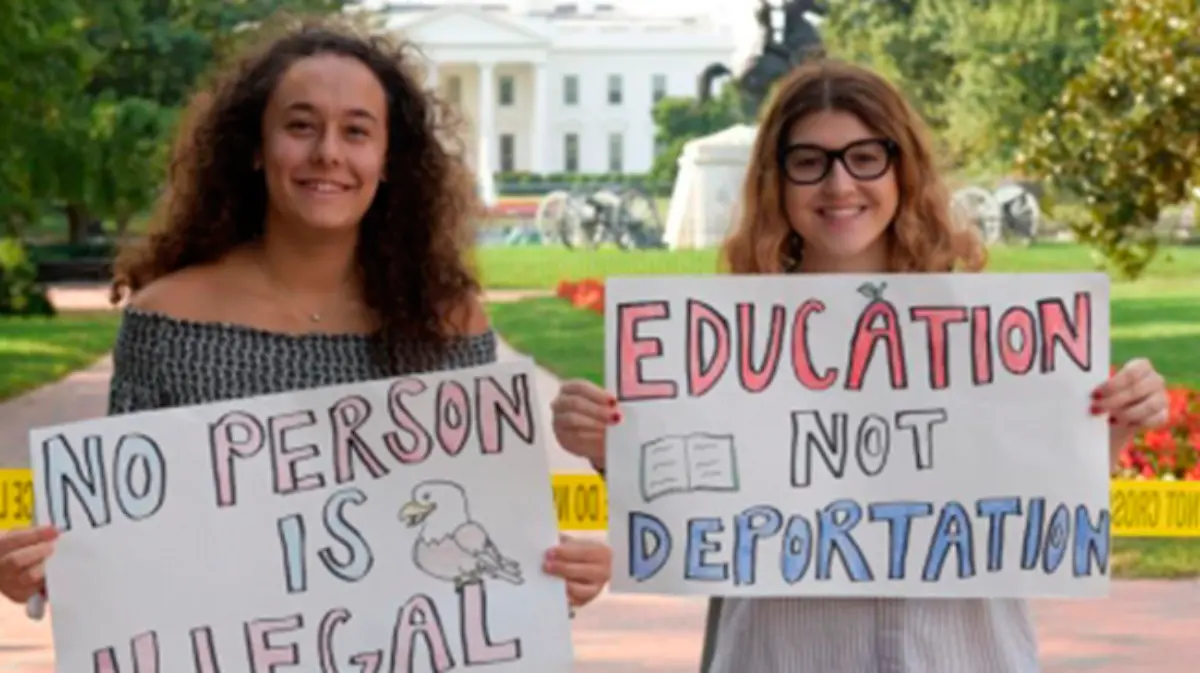 NO PERSON
IS
ILLEGAL
EDUCATION
NOT
DEPORTATION
DO
NOT CROSS